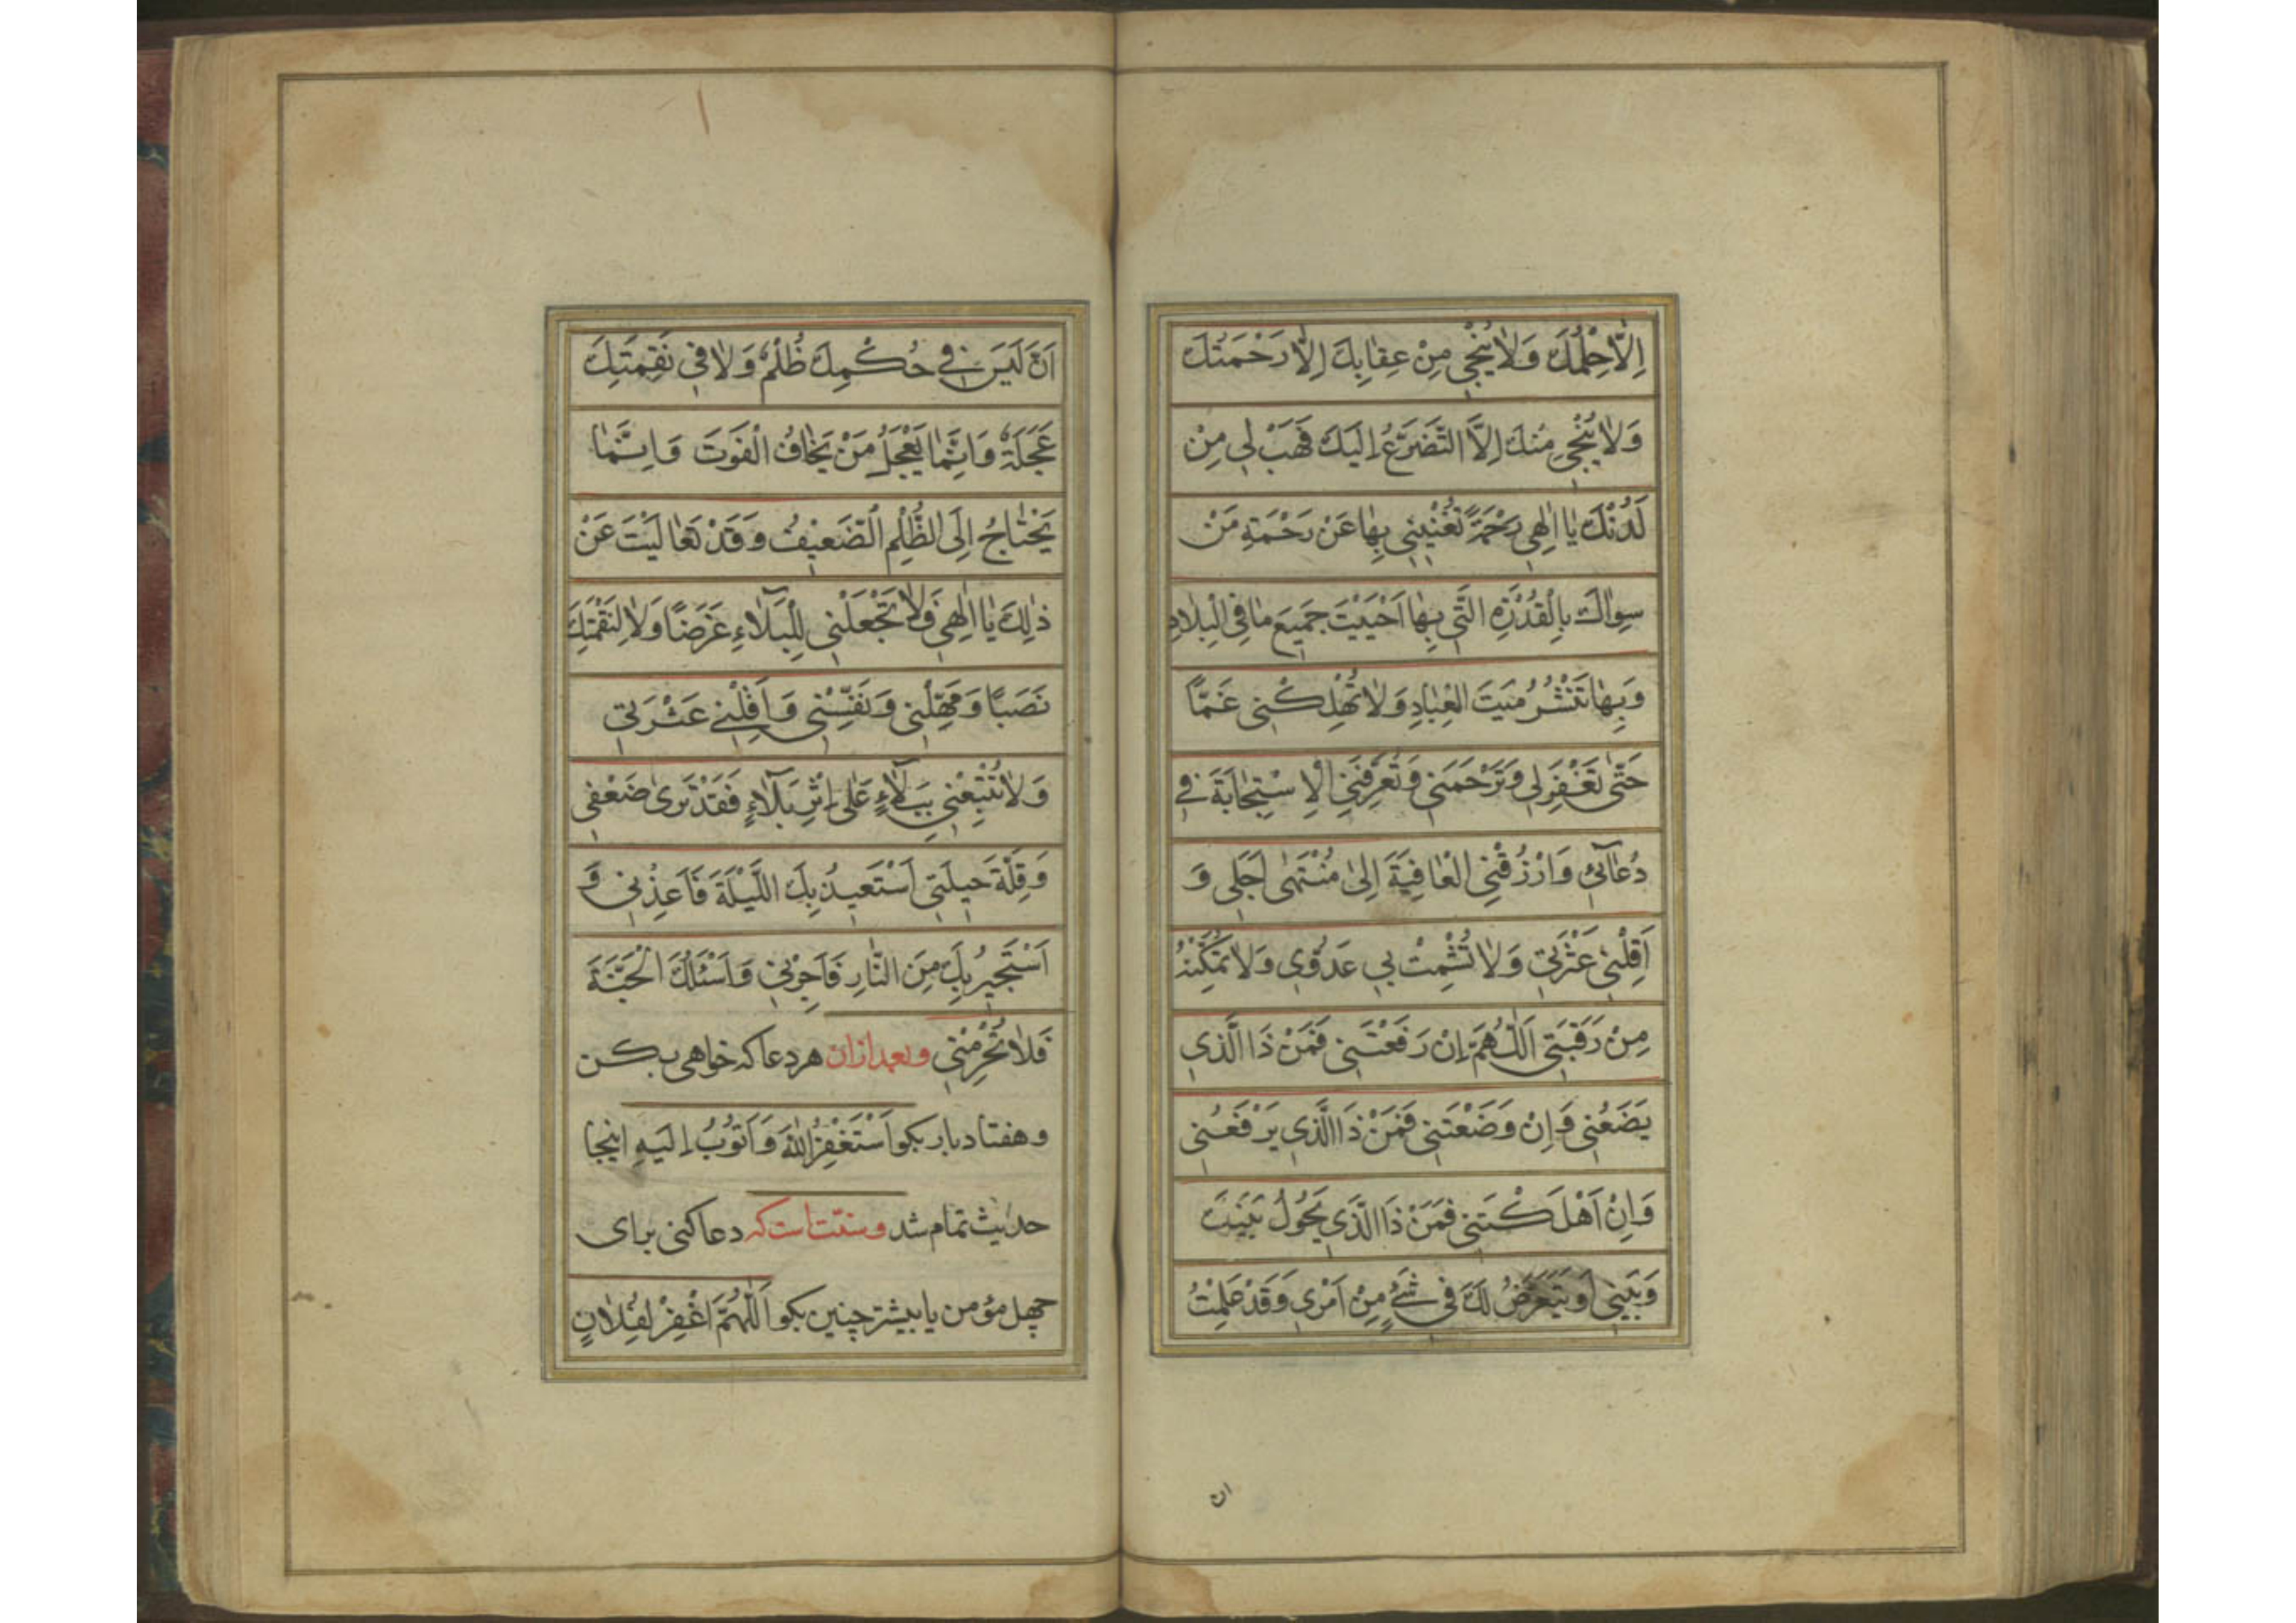 اِلّٰا حِلْمُكَ وَلٰا يُنْجٖي مِنْ عِقٰابِكَ اِلّٰا رَحْمَتُكَ
وَلٰا يُنْجٖي مِنْكَ اِلَّا التَّضَرُّعُ اِلَيْكَ فَهَبْ لٖي مِنْ
لَدُنْكَ يٰا اِلٰهٖي رَحْمَةً تُغْنٖينٖي بِهٰا عَنْ رَحْمَةِ مَنْ
سِوٰاكَ بِالْقُدْرَةِ الَّتٖي بِهٰا اَحْيَيْتَ جَمٖيعَ مٰا فِي الْبِلٰادِ
وَبِهٰا تَنْشُرُ مَيْتَ الْعِبٰادِ وَلٰا تُهْلِكْنٖي غَمًّا
حَتّٰى تَغْفِرَ لٖي وَتَرْحَمَنٖي وَتُعَرِّفَنِي الْاِسْتِجٰابَةَ فٖي
دُعٰآئٖي وَارْزُقْنِي الْعٰافِيَةَ اِلىٰ مُنْتَهىٰ اَجَلٖي وَ
اَقِلْنٖي عَثْرَتٖي وَلٰا تُشْمِتْ بٖي عَدُوّٖي وَلٰا تُمَكِّنْهُ
مِنْ رَقَبَتٖي اَللّٰهُمَّ اِنْ رَفَعْتَنٖي فَمَنْ ذَا الَّذٖي
يَضَعُنٖي وَاِنْ وَضَعْتَنٖي فَمَنْ ذَا الَّذٖي يَرْفَعُنٖي
وَاِنْ اَهْلَكْتَنٖي فَمَنْ ذَا الَّذٖي يَحُولُ بَيْنَكَ
وَبَيْنٖي اَوْ يَتَعَرَّضُ لَكَ فٖي شَيْءٍ مِنْ اَمْرٖي وَقَدْ عَلِمْتُ
ان
اَنْ لَيْسَ فٖي حُكْمِكَ ظُلْمٌ وَلٰا فٖي نَقِمَتِكَ
عَجَلَةٌ وَاِنَّمٰا يَعْجَلُ مَنْ يَخٰافُ الْفَوْتَ وَاِنَّمٰا
يَحْتٰاجُ اِلَى الظُّلْمِ الضَّعٖيفُ وَقَدْ تَعٰالَيْتَ عَنْ
ذٰلِكَ يٰا اِلٰهٖي وَلٰا تَجْعَلْنٖي لِلْبَلٰآءِ غَرَضًا وَلٰا لِنَقْمَتِكَ
نَصَبًا وَمَهِّلْنٖي وَنَفِّسْنٖي وَاَقِلْنٖي عَثْرَتٖي
وَلٰا تُتْبِعْنٖي بِبَلٰآءٍ عَلىٰ اِثْرِ بَلٰآءٍ فَقَدْ تَرىٰ ضَعْفٖي
وَقِلَّةَ حٖيلَتٖي اَسْتَعٖيذُ بِكَ اللَّيْلَةَ فَاَعِذْنٖي وَ
اَسْتَجٖيرُ بِكَ مِنَ النّٰارِ فَاَجِرْنٖي وَاَسْئَلُكَ الْجَنَّةَ
فَلٰا تَحْرِمْنٖي وبعد ازان هر دعا كه خواهى بكن
وهفتاد بار بكو اَسْتَغْفِرُ اللّٰهَ وَاَتُوبُ اِلَيْهِ اينجا
حديث تمام شد وسنّت است كه دعا كنى براى
چهل مؤمن يا بيشتر چنين بكو اَللّٰهُمَّ اغْفِرْ لِفُلٰانٍ